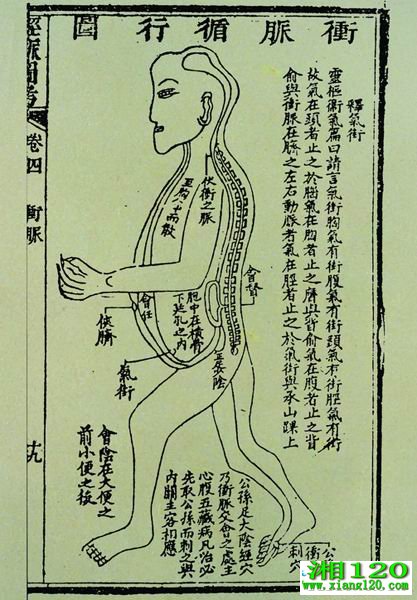 衝脈循行圖
釋氣街
靈樞衛氣篇曰請言氣街胸氣有街腹氣有街頭氣有街脛氣有街
故氣在頭者止之於腦氣在胸者止之膺與背俞氣在腹者止之背
俞與衝脈在臍之左右動脈者氣在脛者止之於氣街與承山踝上
伏衝之脈
至胸中而散
會督
會任
胞中在橫骨
下廷孔之內
至會陰
俠臍
氣街
會陰在大便之
前小便之後
公孫足太陰經穴
乃衝脈交會之處主
心腹五藏病凡治必
先取公孫而刺之與
內關主客相應
公
衝
刺穴
經脈圖考
卷四
衝脈
十九
湘120
www.xiang120.com